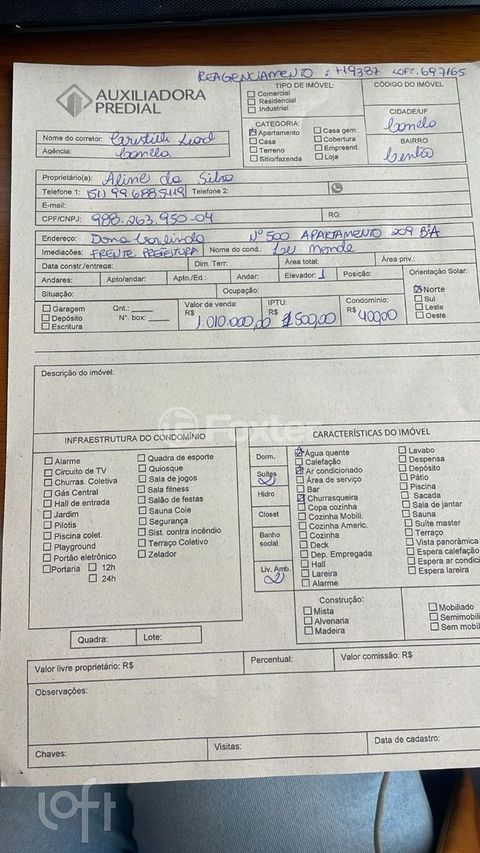 REAGENCIAMENTO : 119387 LOFT. 697165
AUXILIADORA
PREDIAL
TIPO DE IMÓVEL:
Comercial
Residencial
Industrial
CÓDIGO DO IMÓVEL
CIDADE/UF
Canela
BAIRRO
Centro
CATEGORIA:
Apartamento
Casa
Terreno
Sítio/fazenda
Casa gem.
Cobertura
Empreend.
Loja
Nome do corretor:
Agência: Canela
Proprietário(a): Aline da Silva
Telefone 1: (51) 99 688 5119 Telefone 2:
E-mail:
CPF/CNPJ: 988.263.950-04 RG:
Endereço: Dona Carlinda Nº 500 APARTAMENTO 209
Imediações: FRENTE PREFEITURA Nome do cond.:
Data constr./entrega: Dim. Terr: Área total: Área priv.:
Andares: Apto/andar: Apto./Ed.: Andar: Elevador: 1 Posição: Orientação Solar:
Situação: Ocupação:
Norte
Sul
Leste
Oeste
Garagem
Depósito
Escritura
Qnt.:
Nº. box:
Valor de venda:
R$ 1.010.000,00
IPTU:
R$ 1500,00
Condomínio:
R$ 400,00
Descrição do imóvel:
Foxter
INFRAESTRUTURA DO CONDOMÍNIO
Alarme
Circuito de TV
Churras. Coletiva
Gás Central
Hall de entrada
Jardim
Pilotis
Piscina colet.
Playground
Portão eletrônico
Portaria 12h
24h
Quadra de esporte
Quiosque
Sala de jogos
Sala fitness
Salão de festas
Sauna Cole
Segurança
Sist. contra incêndio
Terraço Coletivo
Zelador
CARACTERÍSTICAS DO IMÓVEL
Dorm.
Suítes
2
Hidro
Closet
Banho
social
Liv. Amb.
2
Água quente
Calefação
Ar condicionado
Área de serviço
Bar
Churrasqueira
Copa cozinha
Cozinha Mobili.
Cozinha Americ.
Cozinha
Deck
Dep. Empregada
Hall
Lareira
Alarme
Lavabo
Despensa
Depósito
Pátio
Piscina
Sacada
Sala de jantar
Sauna
Suíte master
Terraço
Vista panorâmica
Espera calefação
Espera ar condici
Espera lareira
Construção:
Mista
Alvenaria
Madeira
Mobiliado
Semimobili
Sem mobil
Quadra: Lote:
Valor livre proprietário: R$ Percentual: Valor comissão: R$
Observações:
Chaves: Visitas: Data de cadastro:
loft